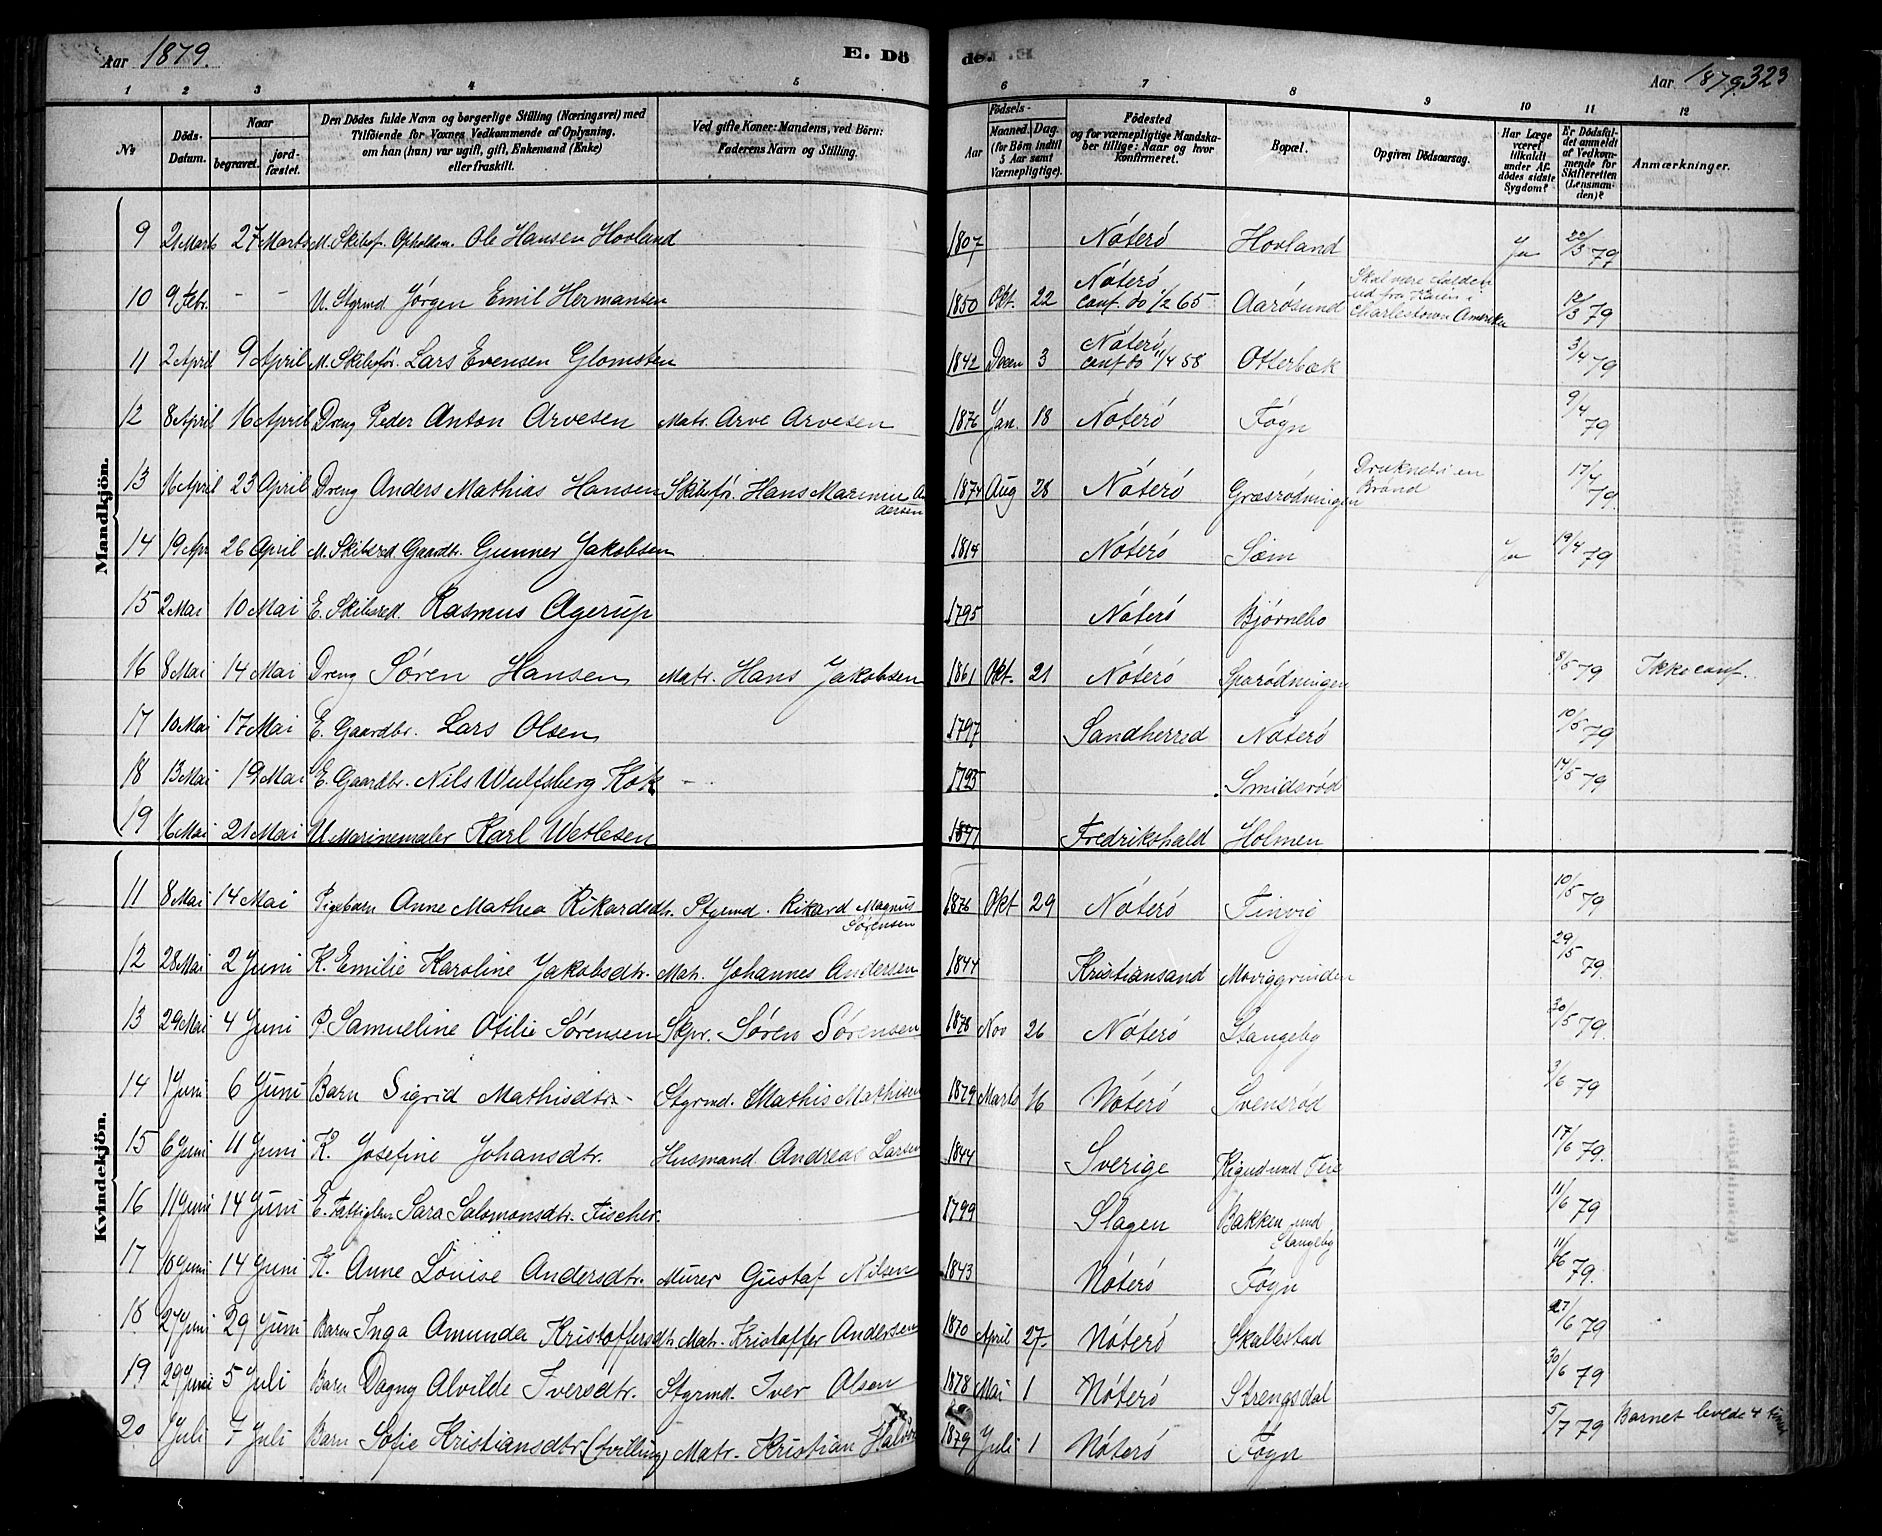 Aar 1879. E. Dö
de. Aar 1879. 323
1 2 3 4 5 6 7 8 9 10 11 12
No. Döds-Datum. Naar begravet. jord-fæstet. Den Dödes fulde Navn og borgerlige Stilling (Næringsvei) med Tilföiende for Voxnes Vedkommende af Oplysning, om han (hun) var ugift, gift, Enkemand (Enke) eller fraskilt. Ved gifte Koner: Mandens, ved Börn: Faderens Navn og Stilling. Födsels- Aar Maaned. Dag. (for Börn indtil 5 Aar samt Værnepligtige). Födested og for værnepligtige Mandskaber tillige: Naar og hvor Konfirmeret. Bopæl. Opgiven Dödsaarsag. Har Læge været tilkaldt under Afdödes sidste Sygdom? Er Dödsfaldet anmeldt af Vedkommende for Skifteretten (Lensmanden)? Anmærkninger.
Mandkjön.
9 21 Marts 27 Marts M. Skibsf. Opholdsm. Ole Hansen Hovland 1807 Nöterö Hovland Ja 22/3 79
10 9 Febr. - - U. Styrmd. Jörgen Emil Hermansen 1850 Okt. 22 Nöterö conf. do 1/2 65 Aarösund Skal være falden ud fra Kaien i Charlestown Amerika 12/3 79
11 2 April 9 April M. Skibsför. Lars Evensen Glomsten 1842 Decen 3 Nöterö conf do 11/4 58 Otterbæk 3/4 79
12 8 April 16 April Dreng Peder Anton Arvesen Matr. Arve Arvesen 1876 Jan. 18 Nöterö Fögn 9/4 79
13 16 April 23 April Dreng Anders Mathias Hansen Skibsför. Hans Marinius Andersen 1874 Aug 28 Nöterö Græsrödningen Druknet i en Brönd 17/4 79.
14 19 Apr 26 April M. Skibsred. Gaardbr. Gunner Jakobsen 1814 Nöterö Sæm Ja 19/4 79
15 2 Mai 10 Mai E. Skibsred. Rasmus Agerup 1795 Nöterö Bjørnebo
16 8 Mai 14 Mai Dreng Søren Hansen Matr. Hans Jakobsen 1861 Okt. 21 Nöterö Sparödningen 8/5 79 Ikke conf.
17 10 Mai 17 Mai E. Gaardbr. Lars Olsen 1797 Sandherred Nöterö 10/5 79
18 13 Mai 19 Mai E. Gaardbr. Nils Wulfsberg Kok - 1795 Smidsröd 14/5 79
19 16 Mai 21 Mai U Marinemaler Karl Wetlesen Fredrikshald Holmen
Kvindekjön.
11 8 Mai 14 Mai Pigebarn Anne Mathea Rikardsdtr. Styrmd. Rikard Magnus Sørensen 1876 Okt 29 Nöterö Finvig 10/5 79
12 28 Mai 2 Juni K. Emilie Karoline Jakobsdtr. Matr. Johannes Andersen 1844 Kristiansand Moviggrinden 29/5 79.
13 29 Mai 4 Juni P. Samueline Otilie Sørensen Skpr. Søren Sørensen 1878 Nov 26 Nöterö Stangeby 30/5 79.
14 1 Juni 6 Juni Barn Sigrid Mathisdtr. - Styrmd. Mathis Mathisen 1879 Marts 16 Nöterö Svensröd 3/6 79
15 6 Juni 11 Juni K. Josefine Johansdtr. Husmand Andreas Larsen 1844 Sverige und Teie 17/6 79.
16 11 Juni 14 Juni E. Fattiglem Sara Salomonsdtr. Fischer. 1799 Slagen Bakken und Stangeby 11/6 79
17 10 Juni 14 Juni K. Anne Louise Andersdtr. Murer Gustaf Nilsen 1843 Nöterö Fögn 11/6 79.
18 27 Juni 29 Juni Barn Inga Amunda Kristoffersdtr. Matr. Kristoffer Andersen 1870 April 27. Nöterö Skallestad 27/6 79
19 29 Juni 5 Juli Barn Dagny Alvilde Iversdtr. Styrmd. Iver Olsen 1878 Mai 1 Nöterö Strengsdal 30/6 79
20 1 Juli 7 Juli Barn Sofie Kristiansdtr. (tvilling) Matr. Kristian 1879 Juli 1 Nöterö Fögn 5/7 79 Barnet levede 4 timer